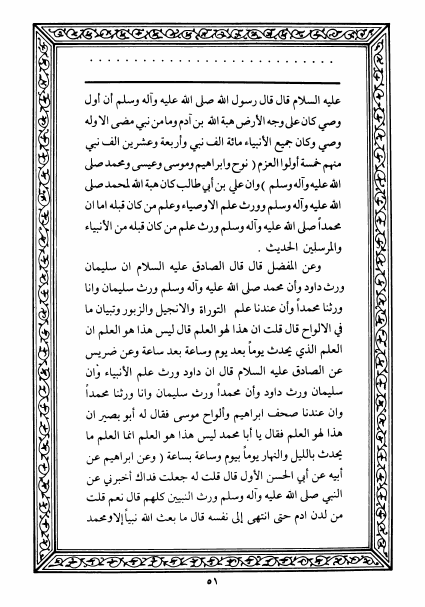 عليه السلام قال قال رسول الله صلى الله عليه وآله وسلم أن أول
وصي كان على وجه الأرض هبة الله بن آدم وما من نبي مضى الا وله
وصي وكان جميع الأنبياء مائة الف نبي وأربعة وعشرين الف نبي
منهم خمسة أولوا العزم ( نوح وابراهيم وموسى وعيسى ومحمد صلى
الله عليه وآله وسلم ) وان علي بن أبي طالب كان هبة الله لمحمد صلى
الله عليه وآله وسلم وورث علم الاوصياء وعلم من كان قبله اما ان
محمداً صلى الله عليه وآله وسلم ورث علم من كان قبله من الأنبياء
والمرسلين الحديث .
وعن المفضل قال قال الصادق عليه السلام ان سليمان
ورث داود وأن محمد صلى الله عليه وآله وسلم ورث سليمان وانا
ورثنا محمداً وأن عندنا علم التوراة والانجيل والزبور وتبيان ما
في الالواح قال قلت ان هذا لهو العلم قال ليس هذا هو العلم ان
العلم الذي يحدث يوماً بعد يوم وساعة بعد ساعة وعن ضريس
عن الصادق عليه السلام قال ان داود ورث علم الأنبياء وأن
سليمان ورث داود وأن محمداً ورث سليمان وانا ورثنا محمداً
وان عندنا صحف ابراهيم وألواح موسى فقال له أبو بصير ان
هذا لهو العلم فقال يا أبا محمد ليس هذا هو العلم انما العلم ما
يحدث بالليل والنهار يوماً بيوم وساعة بساعة ( وعن ابراهيم عن
أبيه عن أبي الحسن الأول قال قلت له جعلت فداك أخبرني عن
النبي صلى الله عليه وآله وسلم ورث النبيين كلهم قال نعم قلت
من لدن ادم حتى انتهى إلى نفسه قال ما بعث الله نبياً إلا ومحمد
٥١